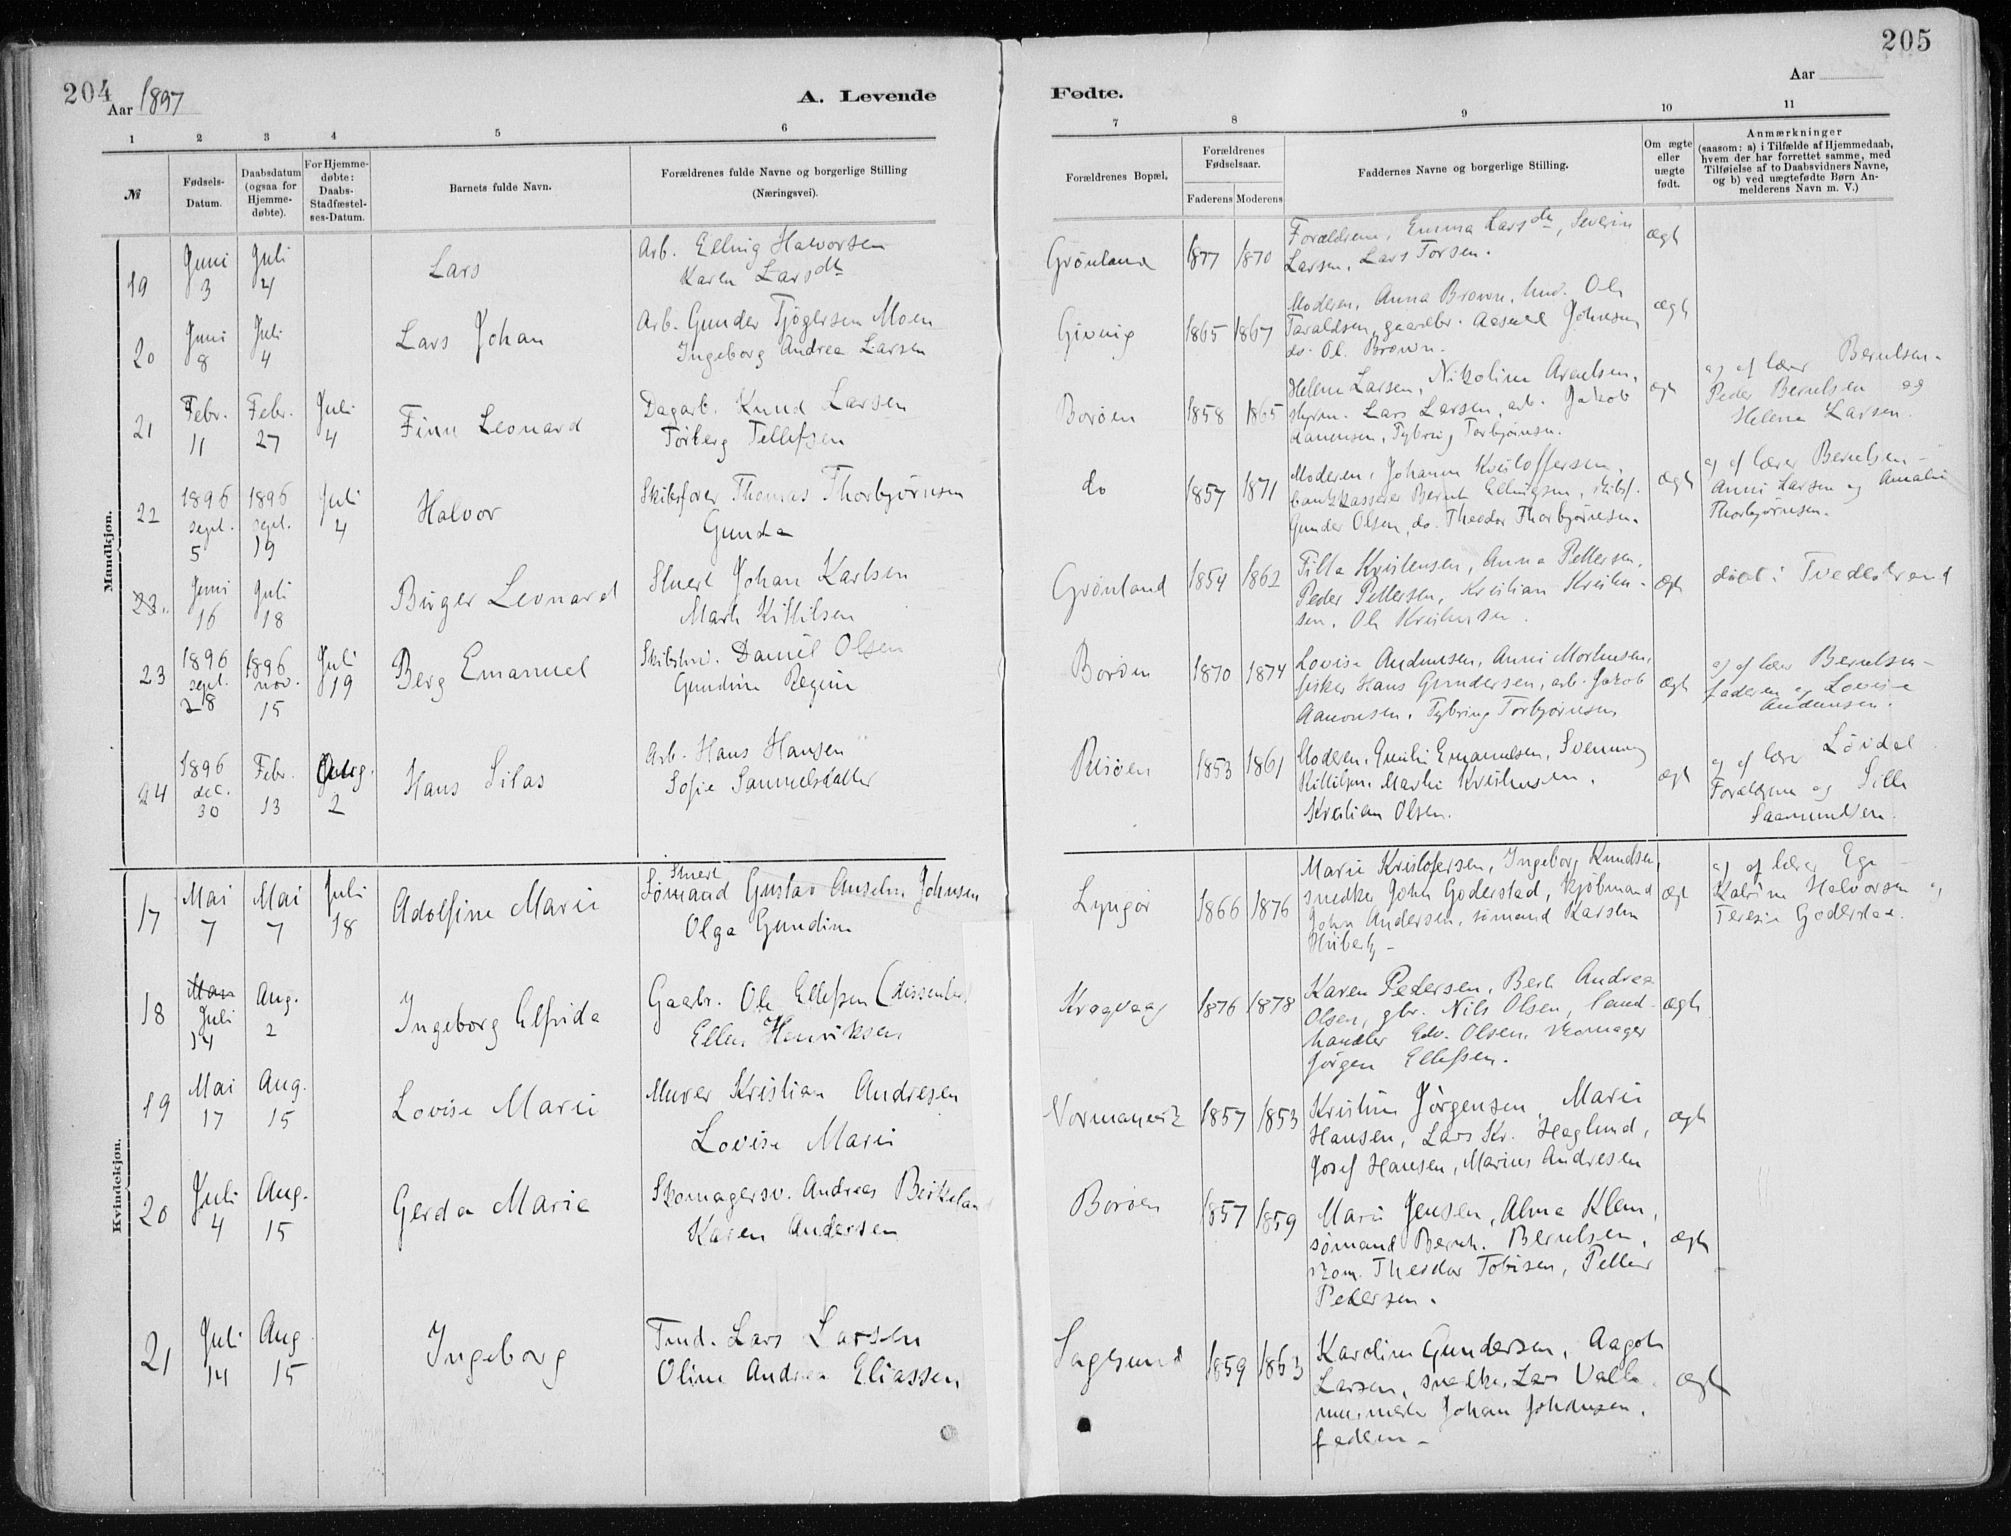 204
Aar 1897
A. Levende
1 2 3 4 5 6
№
Fødsels-
Datum.
Daabsdatum
(ogsaa for
Hjemme-
døbte).
For Hjemme-
døbte:
Daabs-
Stadfæstel-
ses-Datum.
Barnets fulde Navn.
Forældrenes fulde Navne og borgerlige Stilling
(Næringsvei).
Mandkjøn.
19 Juni 3 Juli 4 Lars
Arb. Elling Halvorsen
Karen Larsdtr
20 Juni 8 Juli 4 Lars Johan
Arb. Gunder Tjøgersen Moen
Ingeborg Andrea Larsen
21 Febr. 11 Febr. 27 Juli 4 Finn Leonard
Dagarb. Knud Larsen
Torberg Tellefsen
22 1896 sept. 5 1896 sept. 19 Juli 4 Halvor
Skibsfører Thomas Thorbjørnsen
Gunda
23. Juni 16 Juli 18 Birger Leonard
Stuert Johan Karlsen
Marth Kittilsen
23 1896 sept. 28 1896 nov. 15 Juli 19 Berg Emanuel
Daniel Olsen
Gundine Regine
24 1896 dec. 30 Febr. 13 Aug. 2 Hans Silas
Arb. Hans Hansen
Sofie Samuelsdatter
Kvindekjøn.
17 Mai 7 Mai 7 Juli 18 Adolfine Marie
Stuert
Sømand Gustav Anselm Johnsen
Olga Gundine
18 Mai Juli 14 Aug. 2 Ingeborg Elfrida
Gaabr. Ole Ellefsen (dissenter)
Ellen Henriksen
19 Mai 17 Aug. 15 Lovise Marie
Murer Kristian Andresen
Lovise Marie
20 Juli 4 Aug. 15 Gerda Marie
Skomagersv. Andreas Birkeland
Karen Andersen
21 Juli 14 Aug. 15 Ingeborg
Tmd. Lars Larsen
Oline Andrea Eliassen
205
Aar
Fødte.
7 8 9 10 11
Forældrenes Bopæl.
Forældrenes
Fødselsaar.
Faderens Moderens
Faddernes Navne og borgerlige Stilling.
Om ægte
eller
uægte
født.
Anmærkninger
(saasom: a) i Tilfælde af Hjemmedaab,
hvem der har forrettet samme, med
Tilføielse af to Daabsvidners Navne,
og b) ved uægtefødte Børn An-
melderens Navn m. V.)
Grønland 1877 1870
Forældrene, Emma Larsdtr, Severin
Larsen, Lars Torsen.
ægt
Giving 1865 1867
Moderen, Anna Brown, Ole
Taraldsen, gaardbr. Johnsen
do. Ol. Brown.
ægt
Borøen 1858 1865
Helene Larsen, Nikoline Arntsen,
styrm. Lars Larsen, arb. Jakob
Aanonsen, Tybring Torbjørnsen.
ægt
og af lærer Berntsen-
Peder Berntsen og
Helene Larsen.
do 1857 1871
Moderen, Johanne Kristoffersen,
bankkasserer Bernt Ellingsen, skibsf.
Gunder Olsen, do. Theodor Thorbjørnsen.
ægt
og af lærer Berntsen-
Anni Larsen og Amalie
Thorbjørnsen.
Grønland 1854 1862
Tilla Kristensen, Anna Pettersen,
Peder Pettersen, Kristian Kristen-
sen, Ole Kristensen.
ægt
døbt i Tvedestrand
Borøen 1870 1874
Lovise Andersen, Anni Mortensen,
fisker Hans Gundersen, arb. Jakob
Aanonsen, Tybring Torbjørnsen
ægt
og af lærer Berntsen-
faderen og Lovise
Andersen.
1853 1861
Moderen, Emilie Emanuelsen, Svenning
Kittilsen, Marthe Kristensen,
Kristian Olsen.
ægt
og af lærer Løvdal
Forældrene og Silla
Saamundsen.
Lyngør 1866 1876
Marie Kristofersen, Ingeborg Knudsen,
snedker John Goderstad, kjøbmand
John Andersen, sømand Karsten
ægt
og af lærer Ege
Katrine Halvorsen og
Teresie Goderstad.
Kragvaag 1876 1878
Karen Pedersen, Berte Andrea
Olsen, gbr. Nils Olsen, land-
handler Edv. Olsen, skomager
Jørgen Ellefsen.
ægt
Normansvik 1857 1853
Kristine Jørgensen, Marie
Hansen, Lars Kr. Haglund,
Josef Hansen, Marius Andresen
ægt
Borøen 1857 1859
Marie Jensen, Alma Klem,
sømand Bernh. Berntsen,
skom. Theodor Tobisen, Petter
Pedersen.
ægt
Sagesund 1859 1863
Karoline Gundersen, Aagot
Larsen, snedker Lars Valle
murmester Johan Johansen,
faderen-
ægt